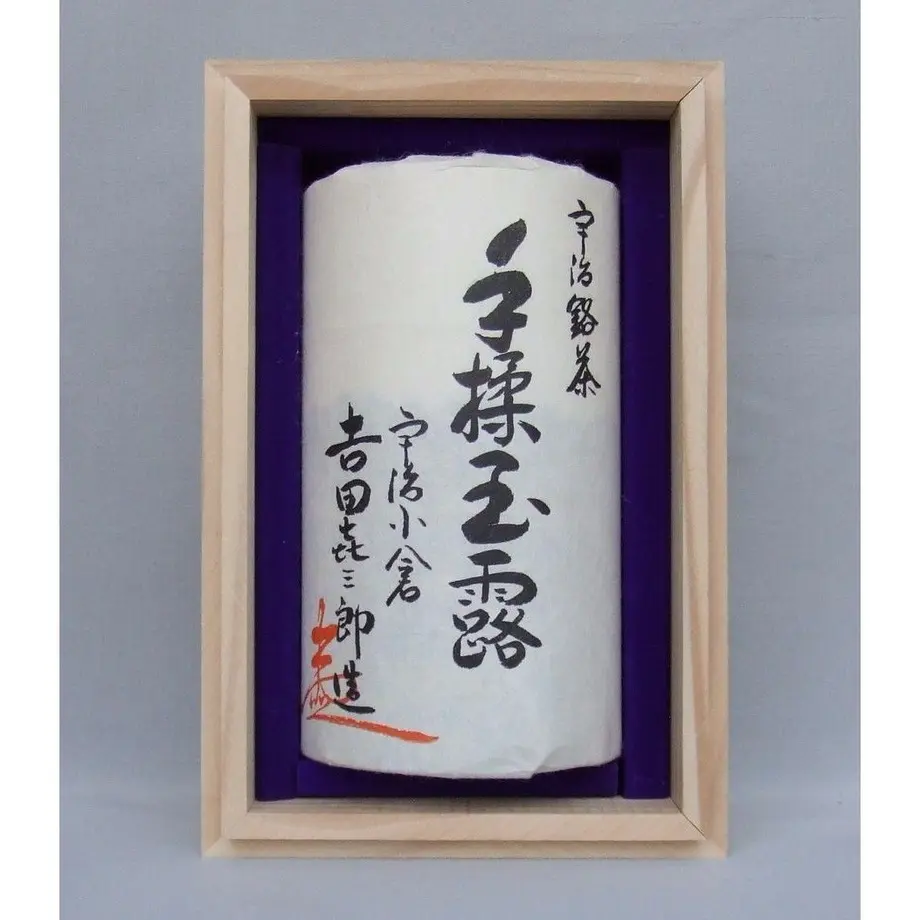 宇治銘茶
手揉玉露
宇治小倉
吉田㐂三郎造